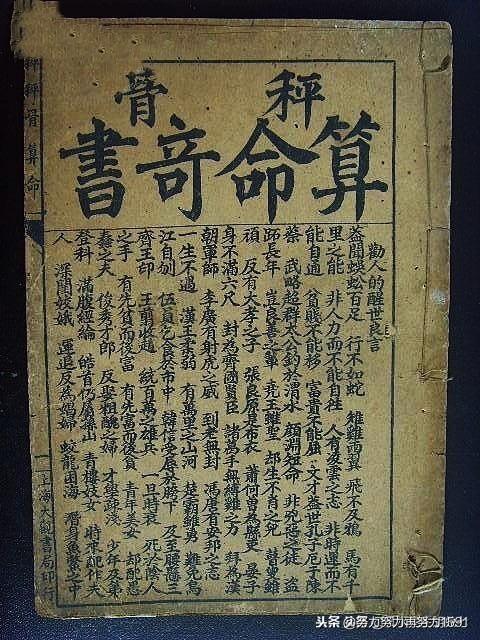 秤骨
算命奇書
勸人的醒世良言
益聞蜈蚣百足 行不如蛇 雄雞兩翼 飛不及鴉 馬有千
里之能 非人力而不能自往 人有凌雲之志 非時運而不
能自通 貧賤不能移 富貴不能屈 文才蓋世孔子厄于陳
蔡 武略超群太公釣於渭水 顏淵短命 非兇惡之徒 盜
跖長年 豈良善之輩 堯王雖聖 却生不肖之兒 瞽叟雖
頑 反有大孝之子 張良原是布衣 蕭何曾為縣吏 晏子
身不滿六尺 封為齊國賢臣 諸葛手無縛雞之力 拜為漢
朝軍師 李廣有射虎之威 到老無封 馮唐有安邦之志
一生不遇 漢王雖弱 有萬里之山河 楚霸雖勇 難免烏
江自刎 伍員乞食於市中 韓信受辱於胯下 及至腰懸三
齊王印 王翦收趙 統百萬之雄兵 一旦時衰 死於陰人
之手 有先貧而後富 有先富而後貧 青年美女 却配愚
蠢之夫 俊秀才郎 反娶粗醜之婦 才學疎淺 少年及第
登科 滿腹經綸 皓首仍居深山 青樓妓女 時來配作夫
人 深閨姣娥 運退反為娼婦 蛟龍困海 潛身魚蝦之中
秤骨算命
上海大觀書局印行
头条@努力努力再努力1591